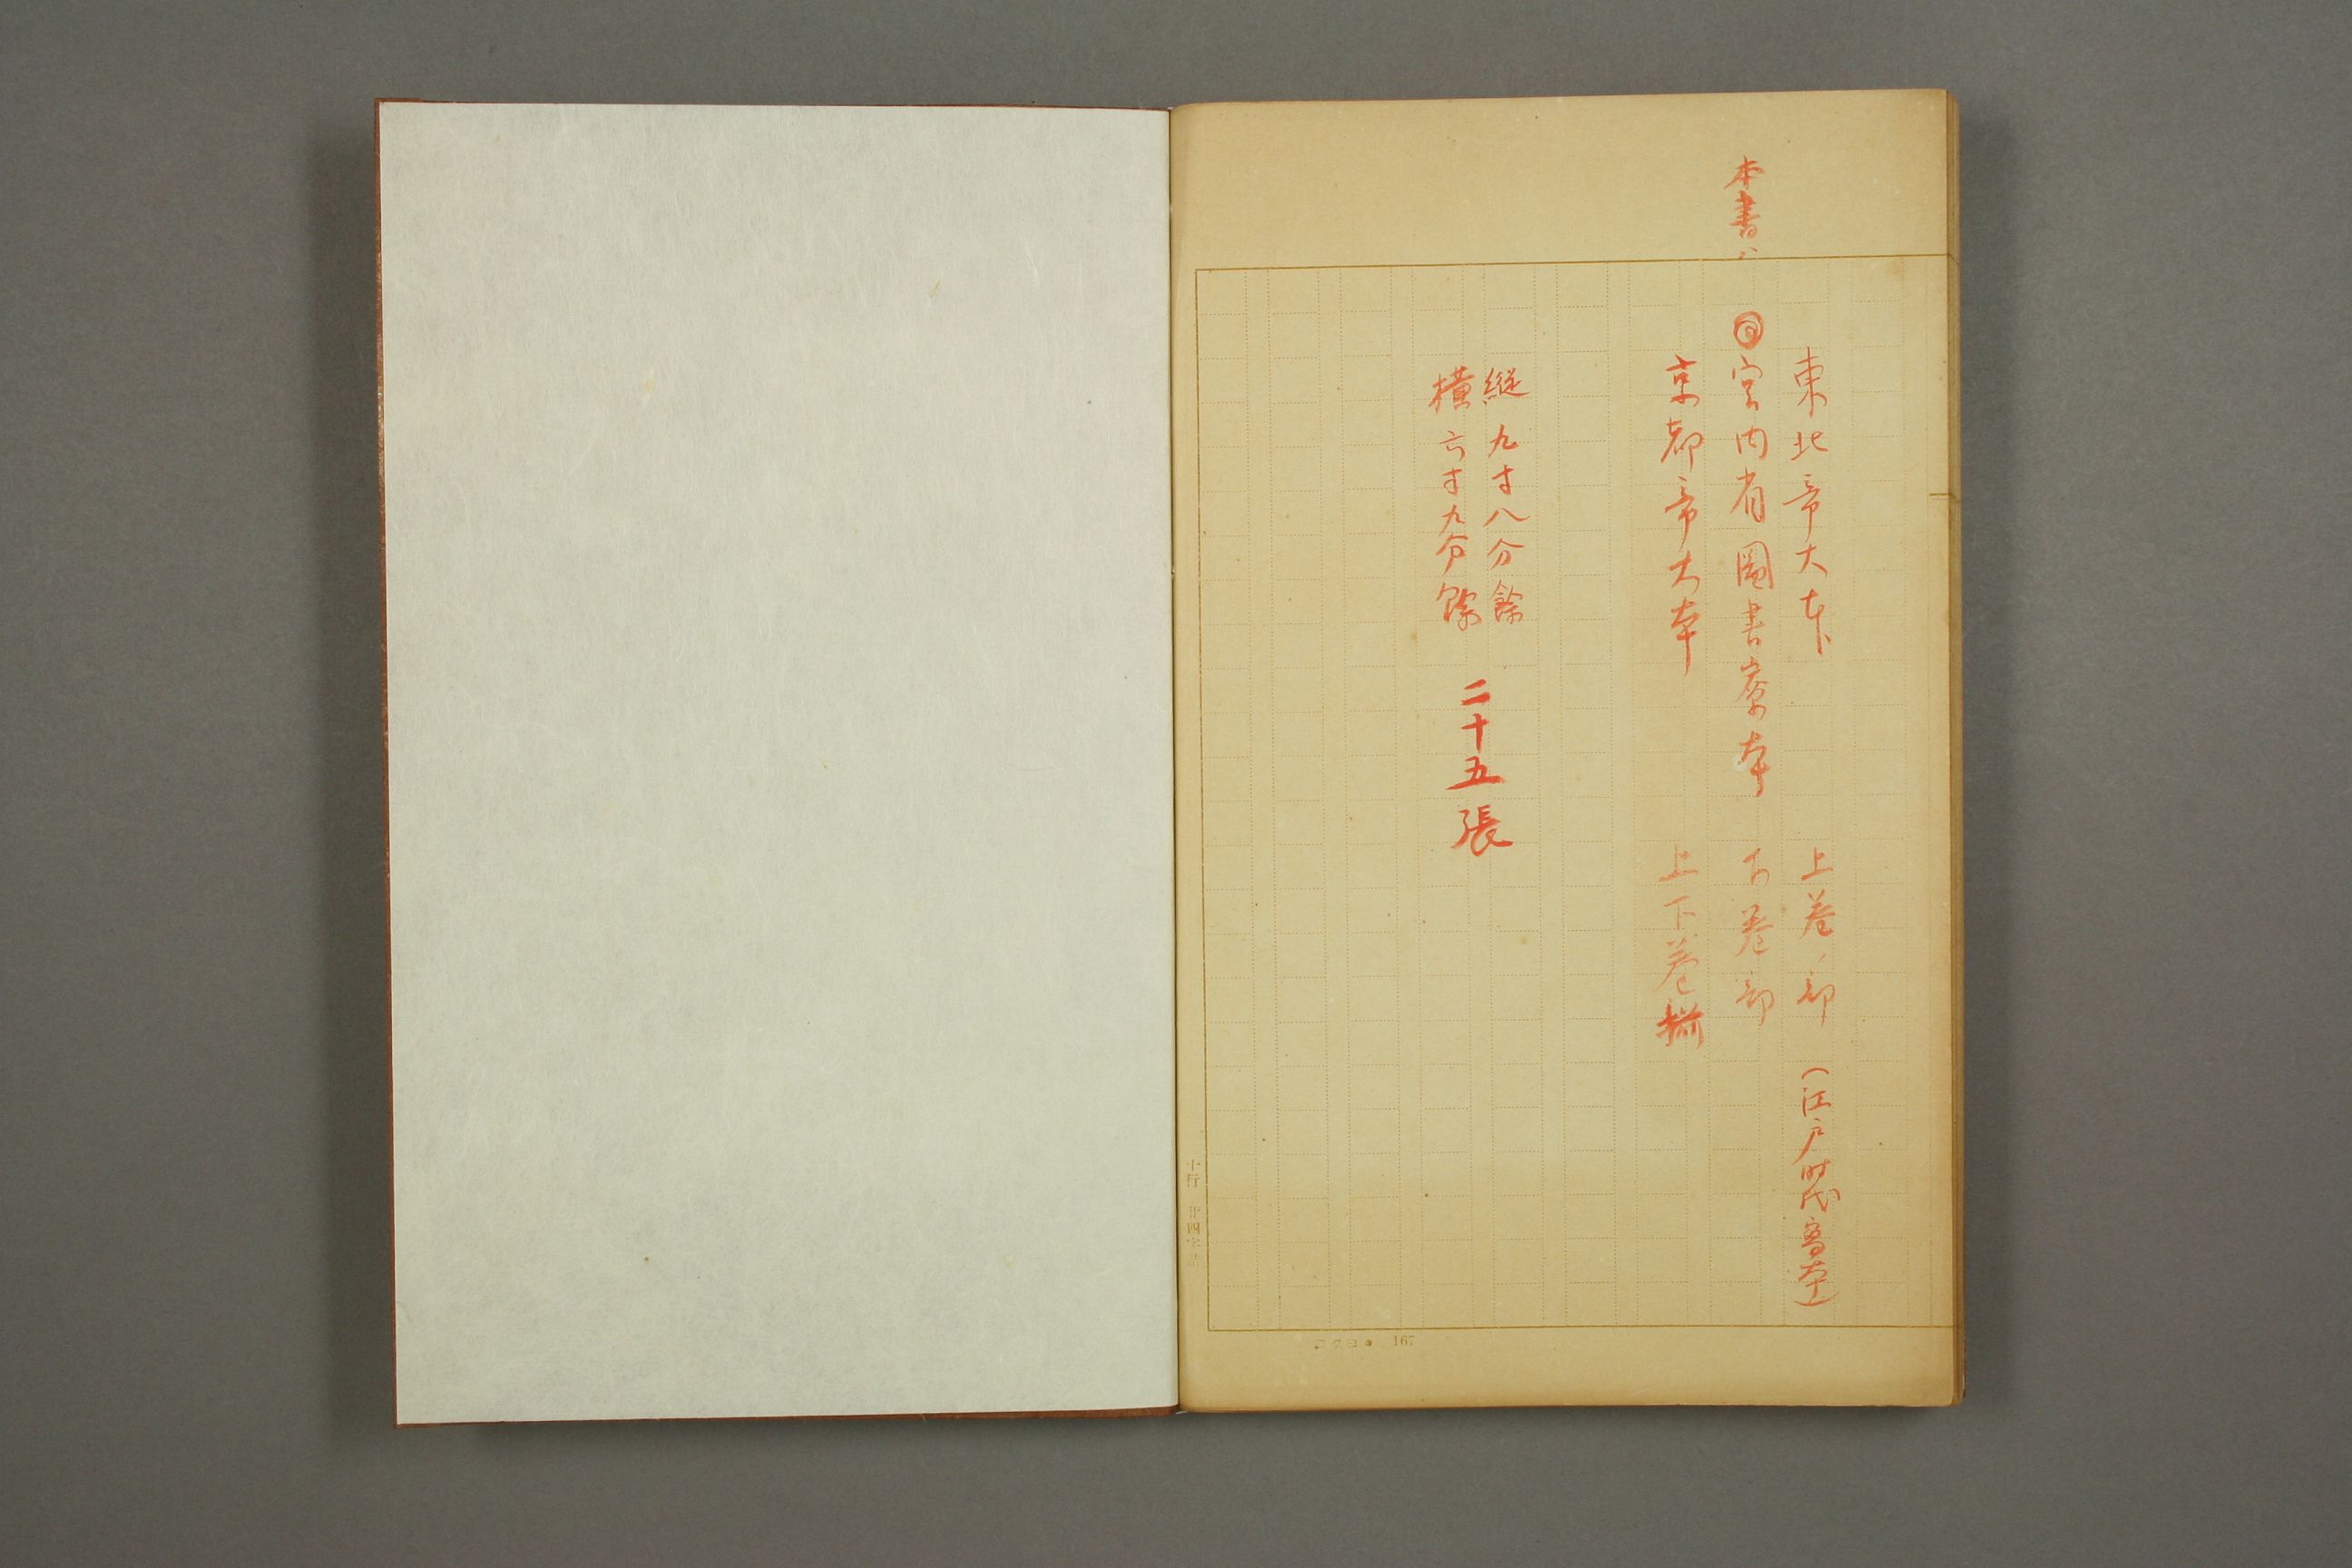 本書ハ
東北帝大本 上巻ノ部 (江戸時代寫本)
◎宮内省圖書寮本 下巻ノ部
京都帝大本 上下巻揃
縦 九寸八分餘
横 六寸九分餘
二十五張
十行 廿四字詰
コクヨ 167